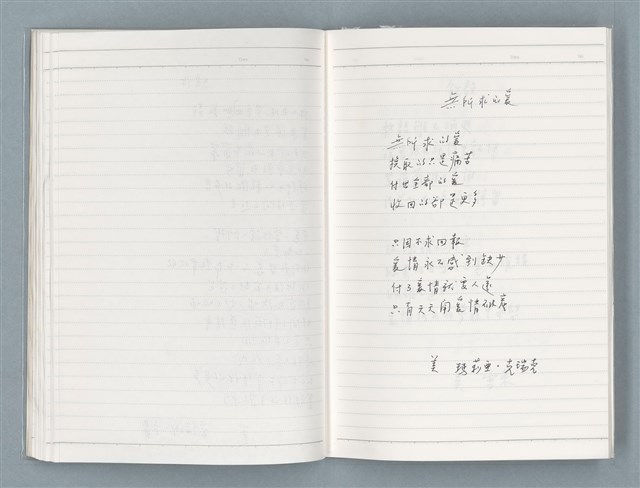 無所求的愛
無所求的愛
換取的只是痛苦
付出全部的愛
收回的卻是更多
只因不求回報
愛情永不感到缺少
付了愛情就要人還
只有天天開愛情
美 瑪莉亞·克瑞克